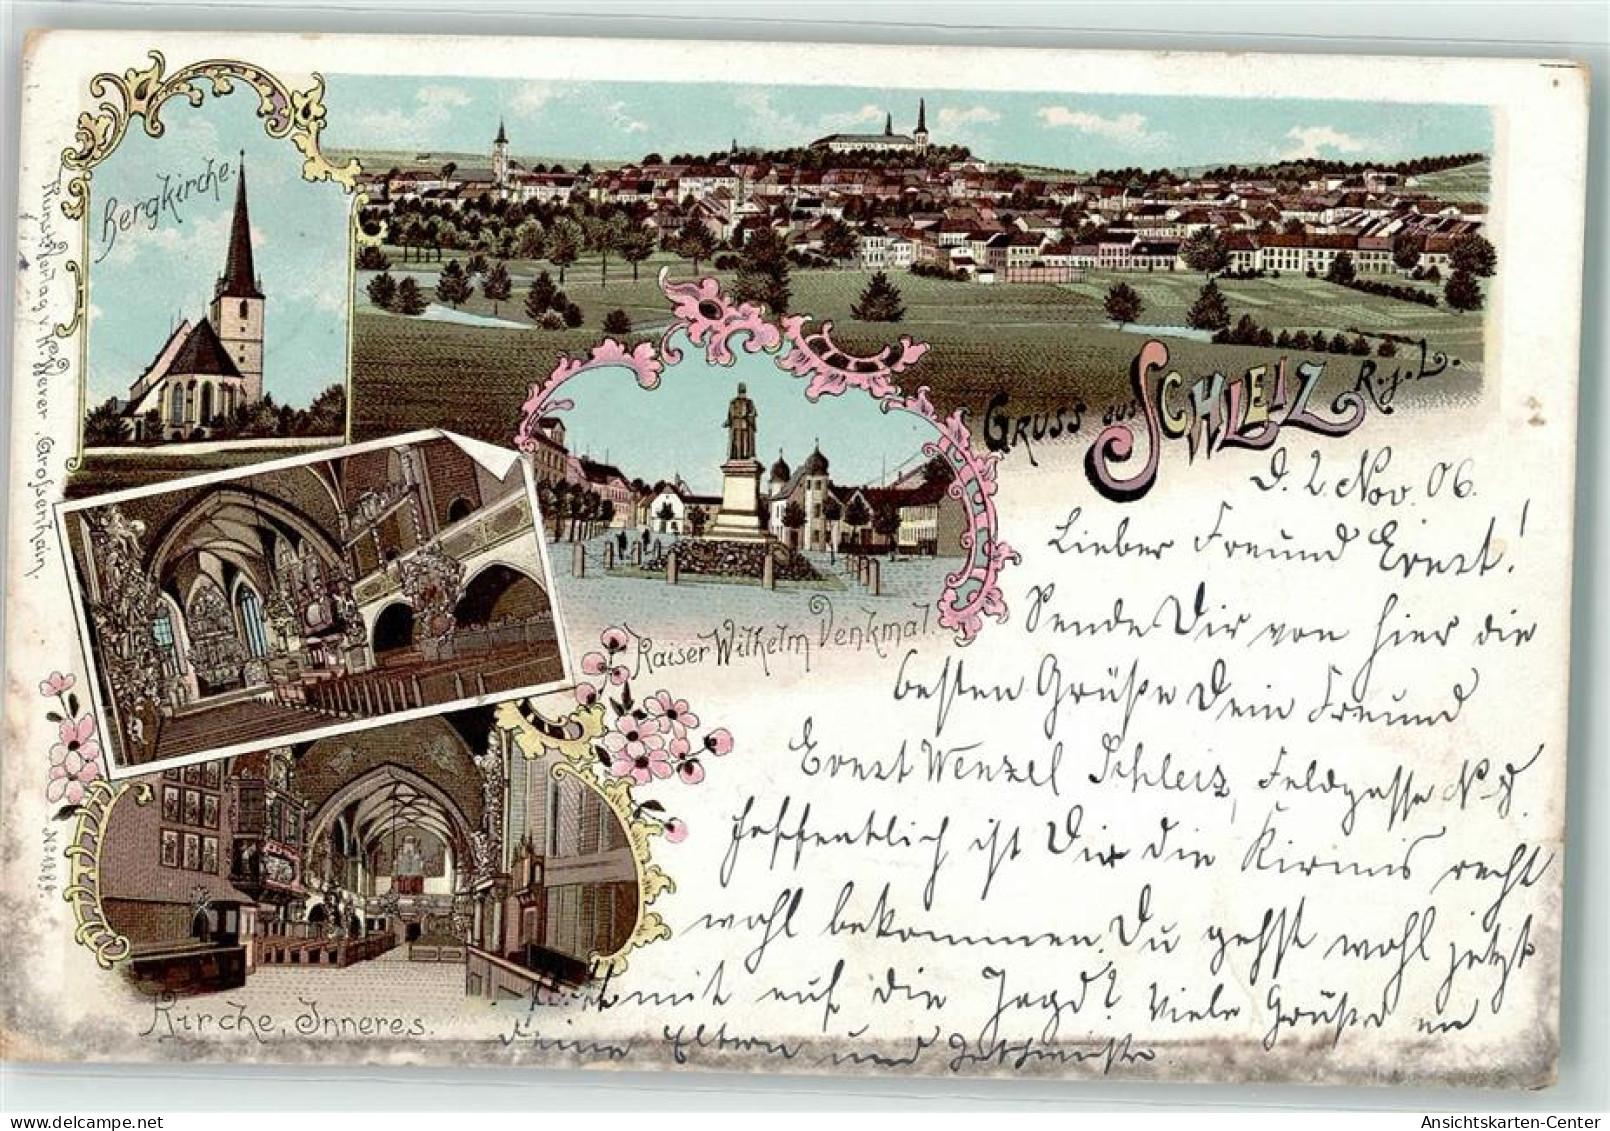 Bergkirche.
Kunstverlag v. H. Heverer, Grossenhain.
Gruss aus Schleiz R.j.L.
Kaiser Wilhelm Denkmal.
Kirche, Inneres.
D. 2. Nov. 06.
Lieber Freund Ernst!
Sende Dir von hier die
besten Grüße Dein Freund
Ernst Wenzel Schleiz, Feldgasse No
Hoffentlich ist Dir die Kirmis recht
wohl bekommen. Du gehst wohl jetzt
mit auf die Jagd? Viele Grüße an
deine Eltern und
Ansichtskarten-Center